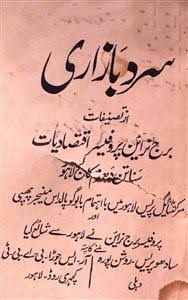 سرد بازاری
از تصنیفات
برج نراین پروفیسر اقتصادیات
سناتن دھرم کالج لاہور
مرکنٹائل پریس لاہور میں باہتمام بابو گوپالداس منیجر چھپی
اور
پروفیسر برج نراین نے لاہور سے شائع کیا
ملنے کا پتہ
سادھو پریس۔ روشن پورہ
آر۔ ایس چوپڑا۔ بی اے بی ٹی
دہلی
کچہری روڈ۔ لاہور